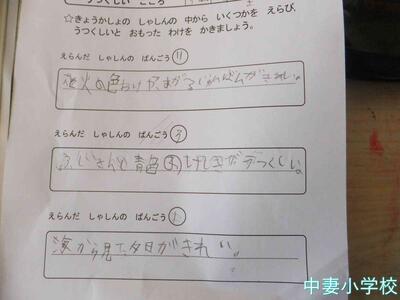 うつくしい こころ
☆きょうかしょの しゃしんの 中から いくつかを えらび、
うつくしいと おもった わけを かきましょう。
えらんだ しゃしんの ばんごう
花火の色
がきれい。
えらんだ しゃしんの ばんごう ③
ふじさんと青色の けしきがうつくしい。
えらんだ しゃしんの ばんごう
海から見た夕日がきれい。
中妻小学校